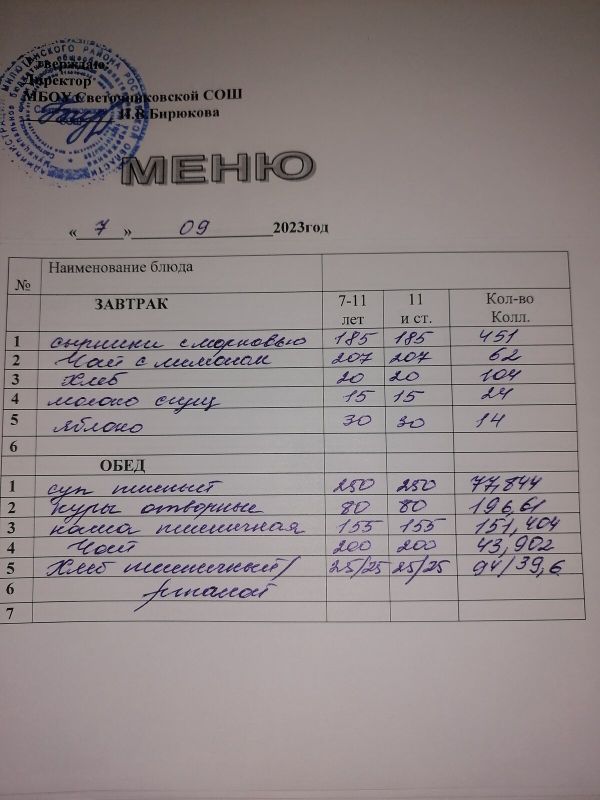 Утверждаю:
Директор
МБОУ Светочниковской СОШ
И.В.Бирюкова
МЕНЮ
« 7 » 09 2023год
№ Наименование блюда
ЗАВТРАК 7-11 лет 11 и ст. Кол-во Колл.
1 сырники с морковью 185 185 451
2 Чай с лимоном 207 207 62
3 хлеб 20 20 104
4 молоко сгущ 15 15 24
5 яблоко 30 30 14
6
ОБЕД
1 суп 250 250 77,844
2 куры отворные 80 80 196,61
3 каша пшеничная 155 155 151,404
4 Чай 200 200 43,902
5 Хлеб пшеничный/ 25/25 25/25 94/39,6
6 ржаной
7